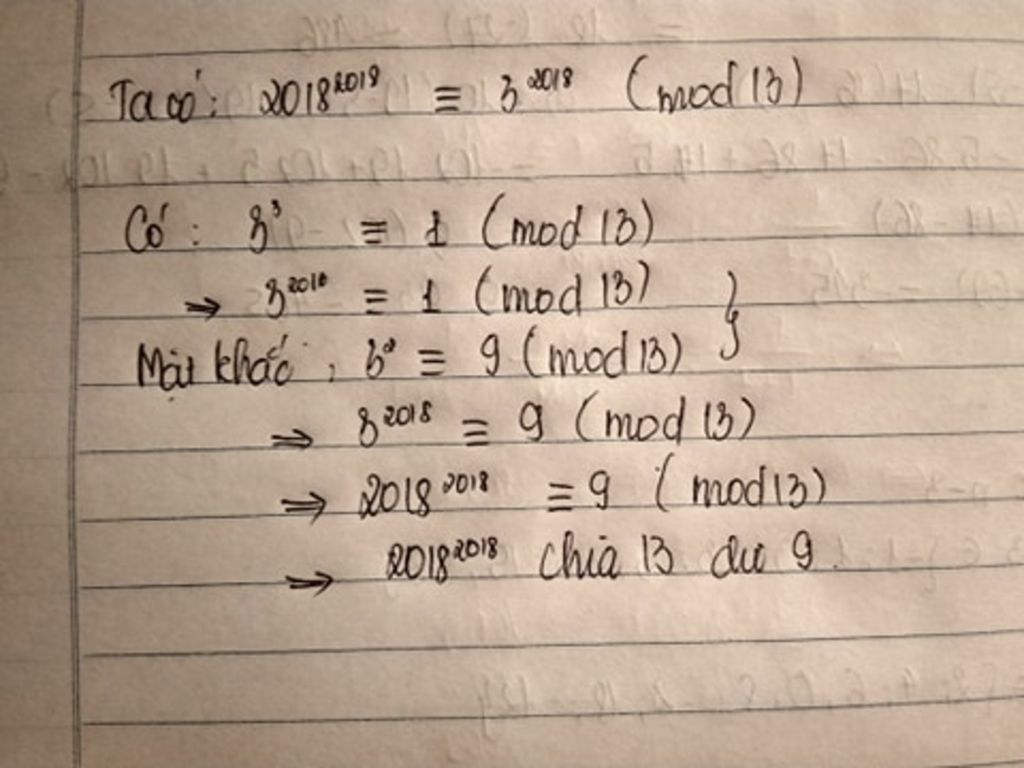 Ta có: 2018²⁰¹⁹ ≡ 3²⁰¹⁸ (mod 13)
Có: 3³ ≡ 1 (mod 13)
⇒ 3²⁰¹⁶ ≡ 1 (mod 13) }
Mặt khác: 3² ≡ 9 (mod 13)
⇒ 3²⁰¹⁸ ≡ 9 (mod 13)
⇒ 2018²⁰¹⁸ ≡ 9 (mod 13)
⇒ 2018²⁰¹⁸ chia 13 dư 9